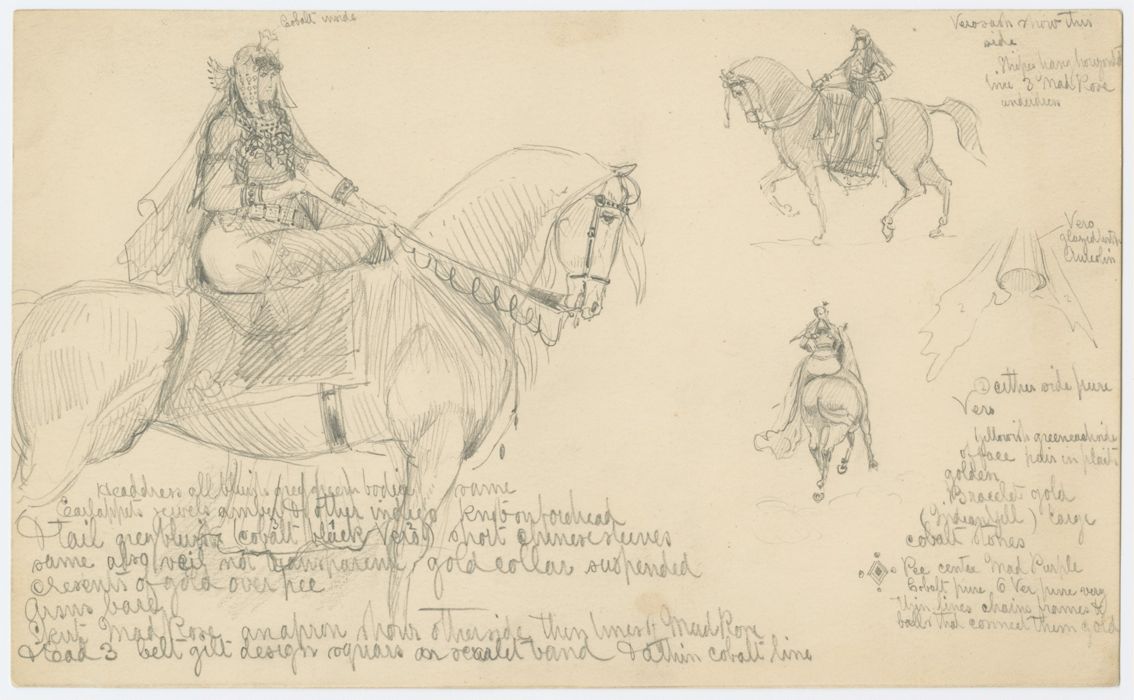 Cobalt inside
Vero sash show this
side
Stripes hang horizontal
lines 3 Mad Rose
underdress
Vero
glazed with
2 2
① either side pure
Vero
Yellowish green each side
of face hair in plaits
golden
Bracelet gold
(Indian fill) large
cobalt stones
Pec center Mad Purple
Cobalt pure 6 Ver pure very
thin lines chains frames &
balls that connect them gold
Headdress all bluish grey green bodice same
Earflappets jewels amber & other indigo knob on forehead
& tail grey bluish cobalt black Vero short chinese sleeves
same also veil not transparent gold collar suspended
cresents of gold over pec
Arms bare
Skirt Mad Rose an apron shows otherside thin lines Mad Rose
& Cad 3 belt gilt design squares on scarlet band & a thin cobalt line